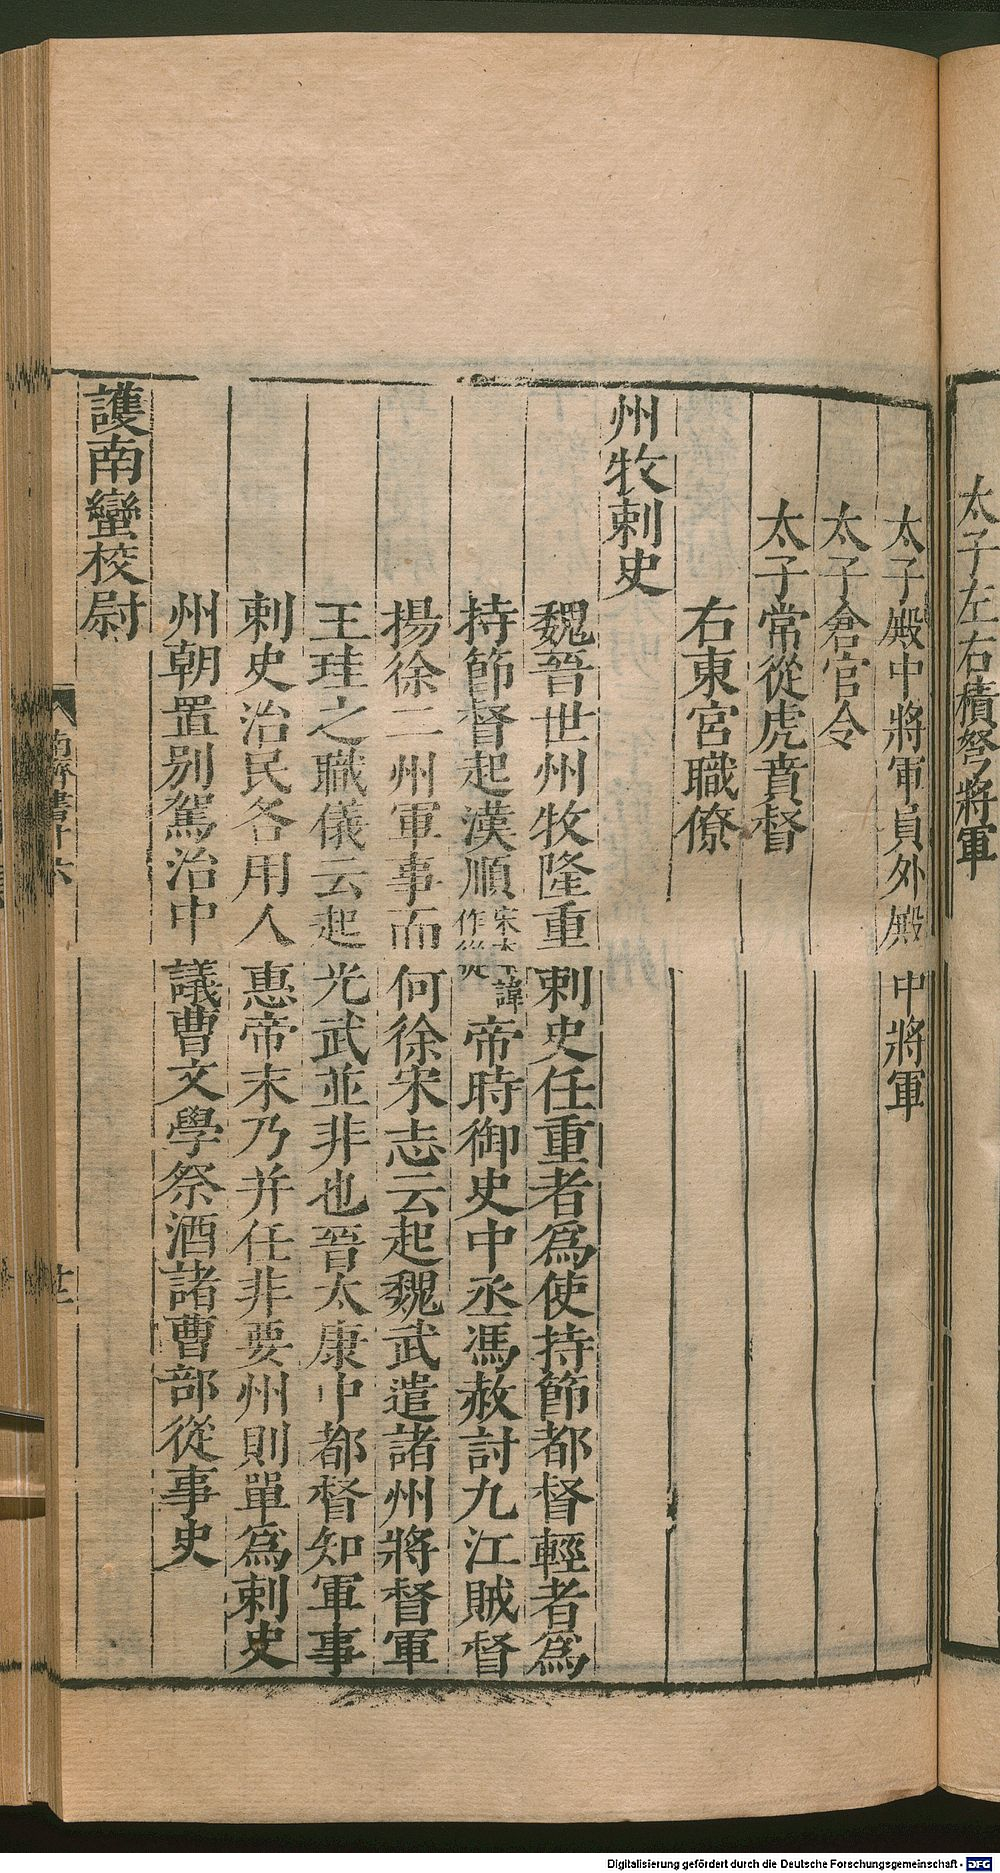 太子左右積弩將軍
太子殿中將軍員外殿中將軍
太子倉官令
太子常從虎賁督
右東宮職僚
州牧刺史
魏晉世州牧隆重刺史任重者爲使持節都督輕者爲
持節督起漢順宋本作從諱帝時御史中丞馮赦討九江賊督
揚徐二州軍事而何徐宋志云起魏武遣諸州將督軍
王珪之職儀云起光武並非也晉太康中都督知軍事
刺史治民各用人惠帝末乃并任非要州則單爲刺史
州朝置別駕治中議曹文學祭酒諸曹部從事史
護南蠻校尉
南齊書十六
廿二
Digitalisierung gefördert durch die Deutsche Forschungsgemeinschaft - DFG